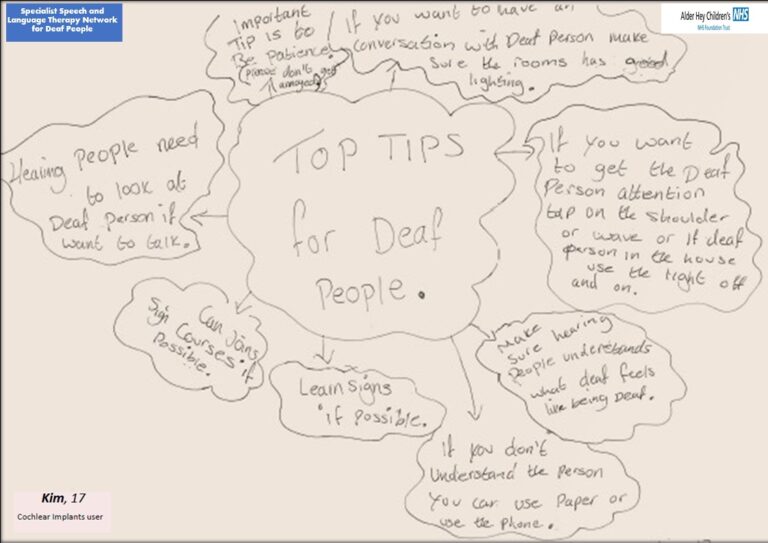 Specialist Speech and
Language Therapy Network
for Deaf People
Alder Hey Children's NHS
NHS Foundation Trust
Important
Tip is to
Be Patience!
(please don't get
annoyed)
If you want to have an
conversation with Deaf Person make
sure the rooms has good
lighting.
TOP TIPS
for Deaf
People.
Hearing People need
to look at
Deaf Person if
want to talk.
If you want
to get the Deaf
Person attention
tap on the shoulder
or wave or if deaf
person in the house
use the light off
and on.
Can Joins
Sign Courses if
Possible.
Learn signs
if possible.
Make
sure hearing
People understands
what deaf feels
like being Deaf.
If you don't
understand the person
You can use Paper or
use the Phone.
Kim, 17
Cochlear Implants user